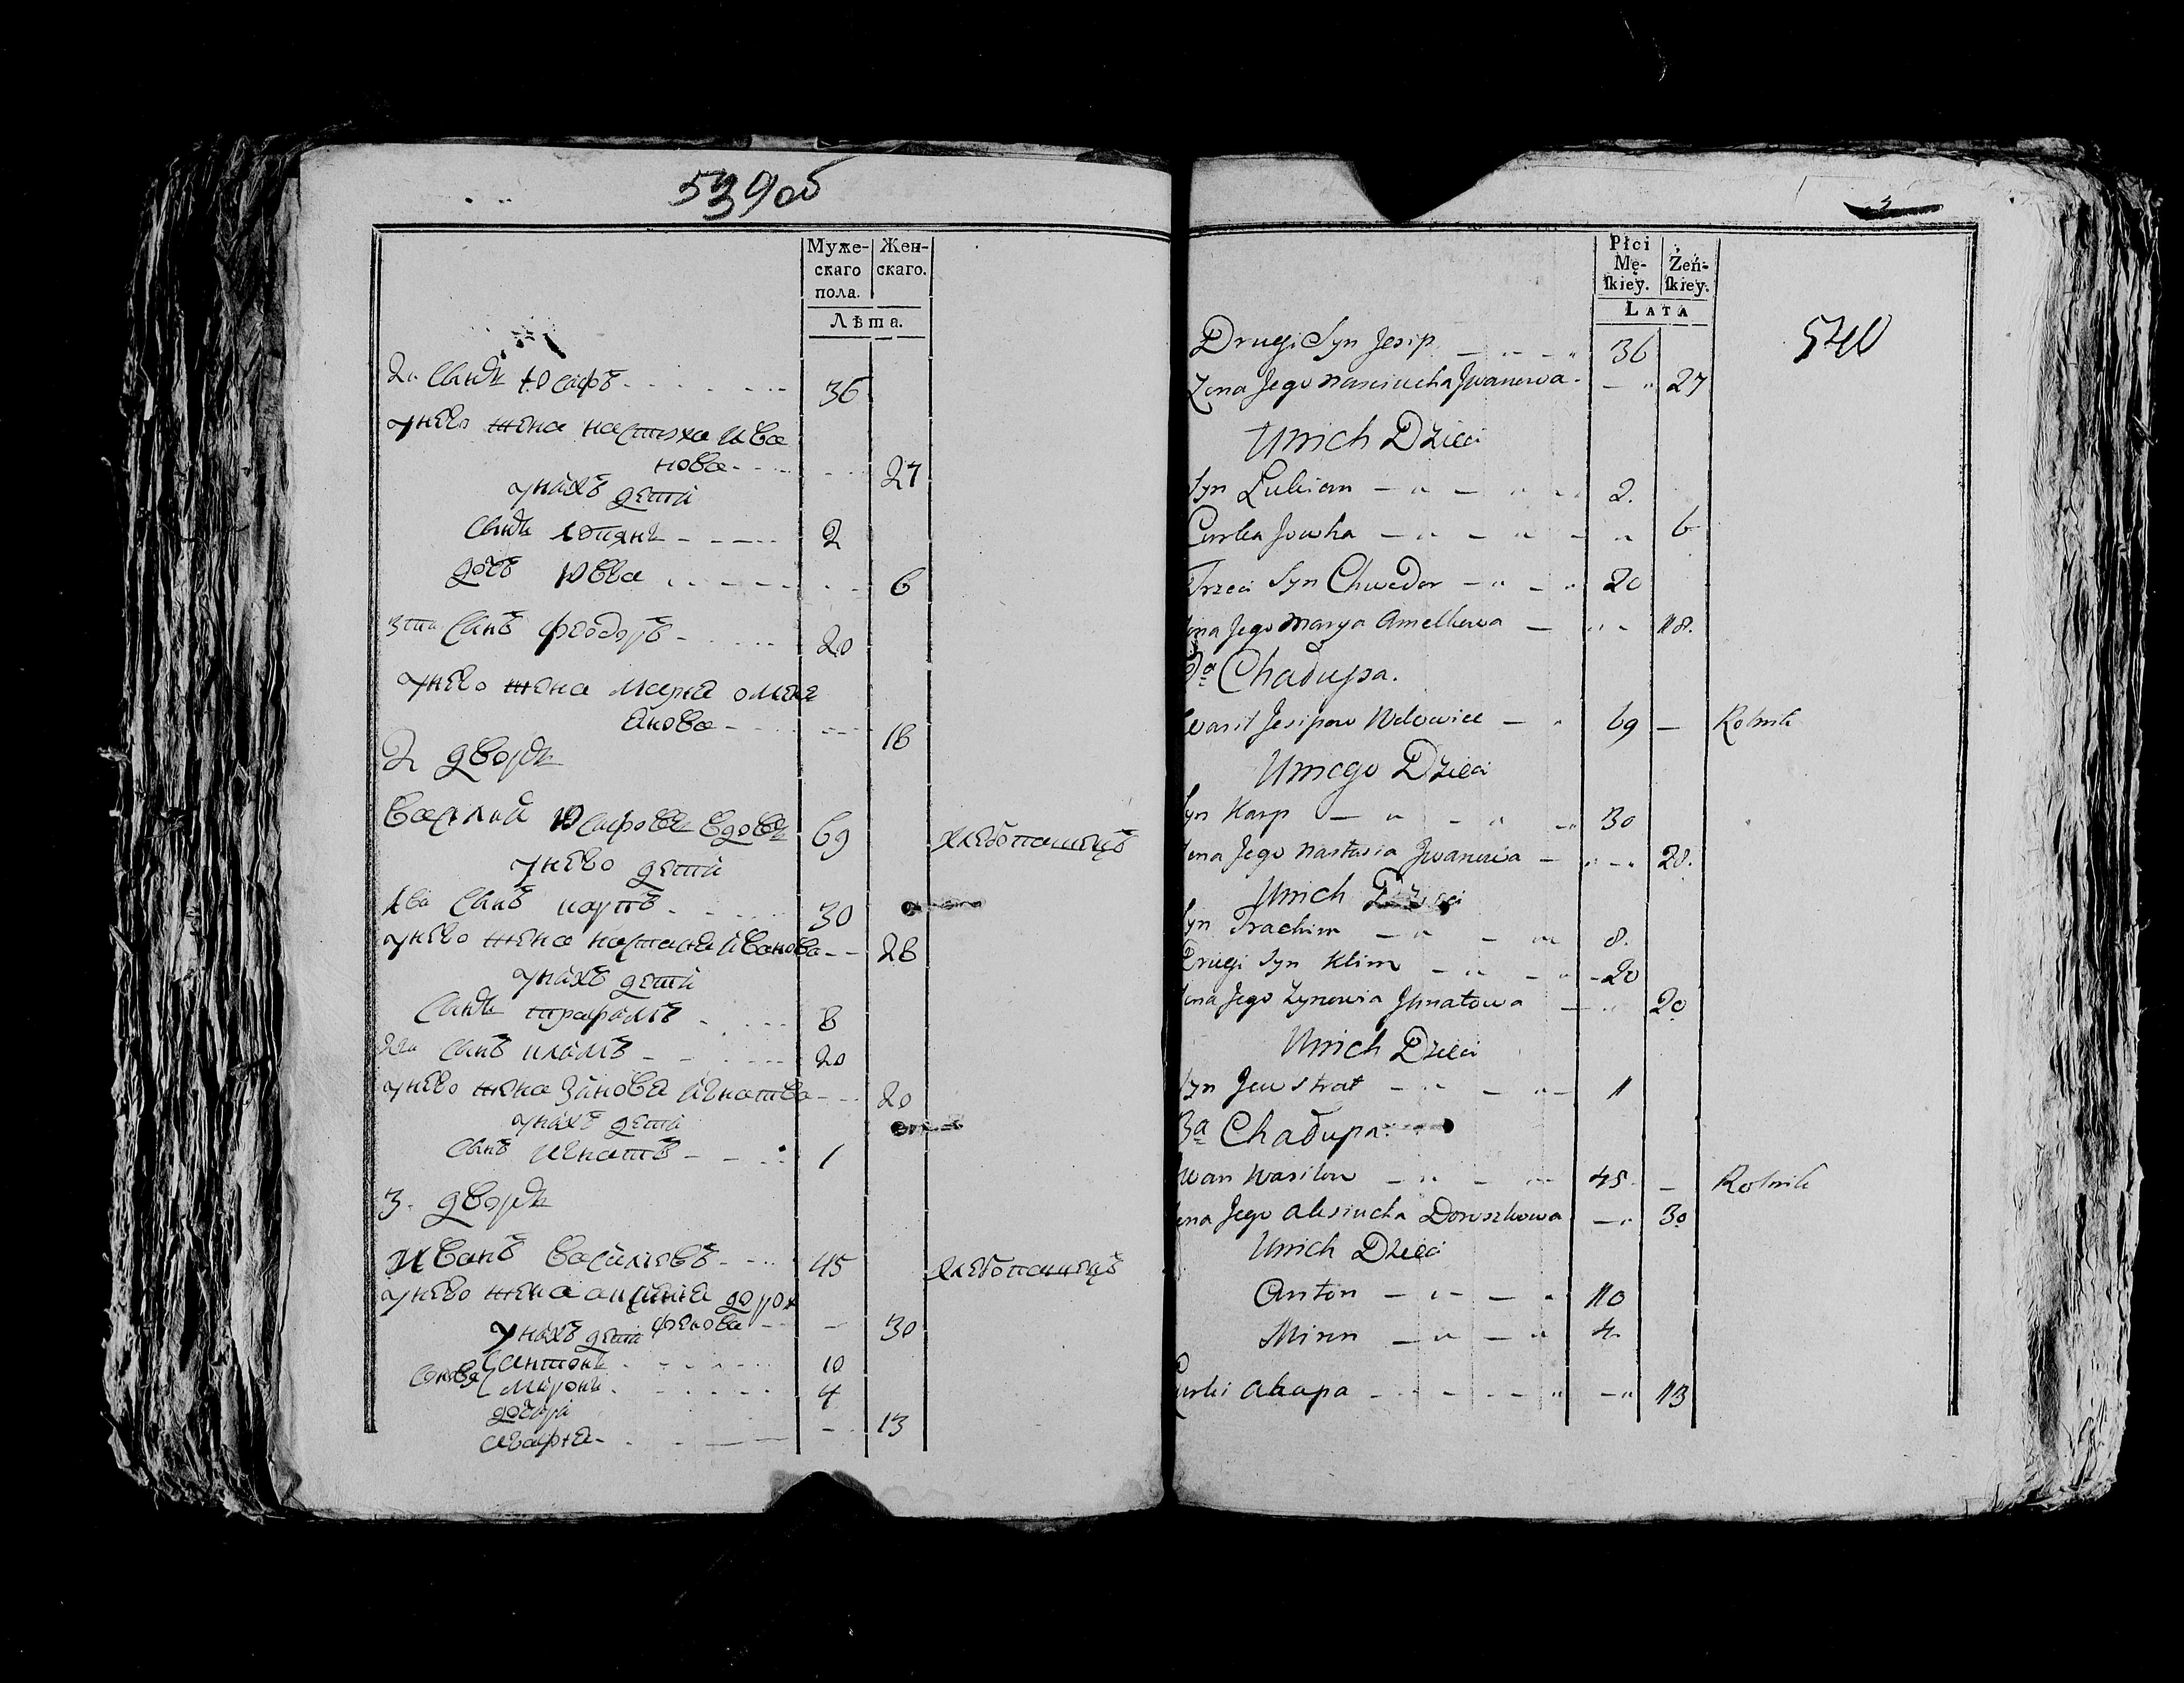 539об
Муже-
скаго
пола.
Жен-
скаго.
Лѣта.
2й Сынъ Юсифъ 36
унево жена настюха ива
нова 27
унихъ дети
Сынъ 2
дочь Юва 6
3тий Сынъ феодоръ 20
унево жена мария омеле
янова 18
2 дворъ
Василий Юсифовъ вдовъ 69 хлебопашецъ
унево дети
1вый Сынъ карпъ 30
унево жена настасия иванова 28
унихъ дети
Сынъ трафимъ 8
2й Сынъ климъ 20
унево жена зиновия игнатова 20
унихъ дети
Сынъ игнатъ 1
3. дворъ
Иванъ василиевъ 45 хлебопашецъ
унево жена аксиния доро
феюва 30
унихъ дети
Сыновя антонъ 10
миронъ 4
дочери
агафия 13
540
Płci
Mę-
ſkiey.
Żeń-
ſkiey.
LATA
Drugi Syn Jesip 36
Zona Jego Nasciucha Jwanowa 27
Unich Dzieci
Syn Lukian 2.
Curka Jowka 6
Trzeci Syn Chwedor 20
Zona Jego Marya Amelkowa 18.
2a Chadupa.
Wasil Jesipow Wdowiec 69 — Rolnik
Uniego Dzieci
Syn Karp 30
Zona Jego Nastasia Jwanowa 28.
Unich Dzieci
Syn Trachim 8.
Drugi Syn Klim 20
Zona Jego Zynowia Jhnatowa 20
Unich Dzieci
Syn Jewstrat 1
3a Chadupa.
Jwan Wasilow 45 — Rolnik
Zona Jego Aksiucha Doroszkowa 30
Unich Dzieci
Anton 10
Miron 4
Curki Ahapa 13